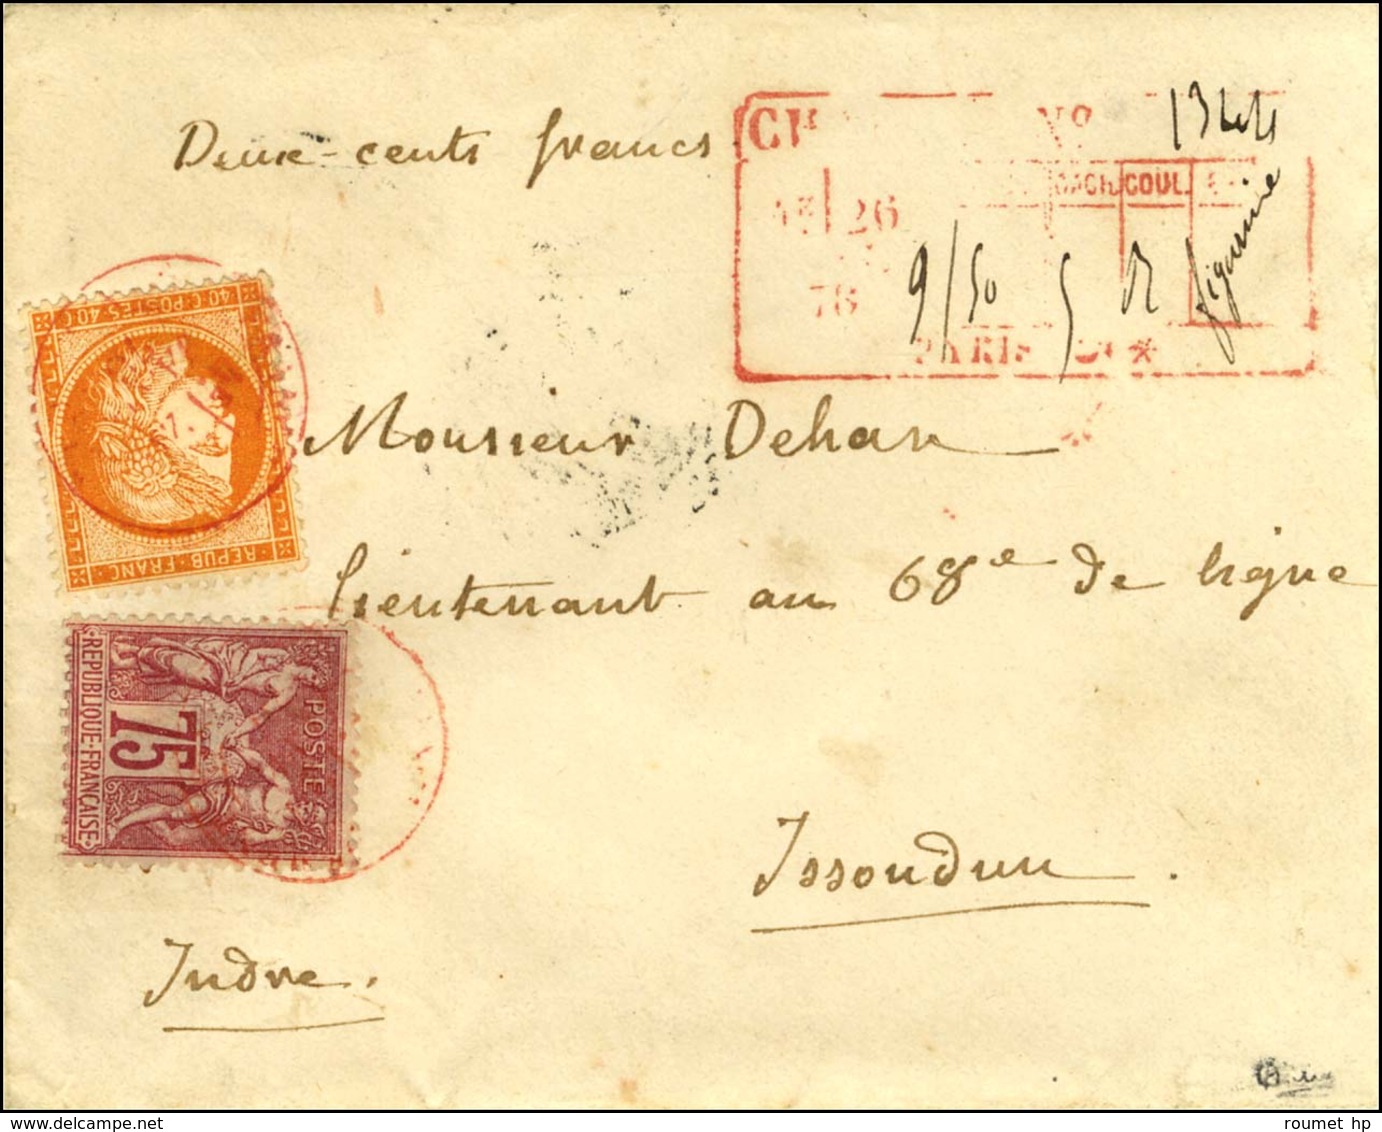 Deux-cents francs
1344
CACH. COUL.
26
78
9/50 5 R
PARIS
40 C. POSTES 40 C.
REPUB. FRANC.
Monsieur Dehan
Lieutenant au 68e de ligne
POSTE
75
REPUBLIQUE FRANÇAISE
Issoudun.
Indre.
roumet hp